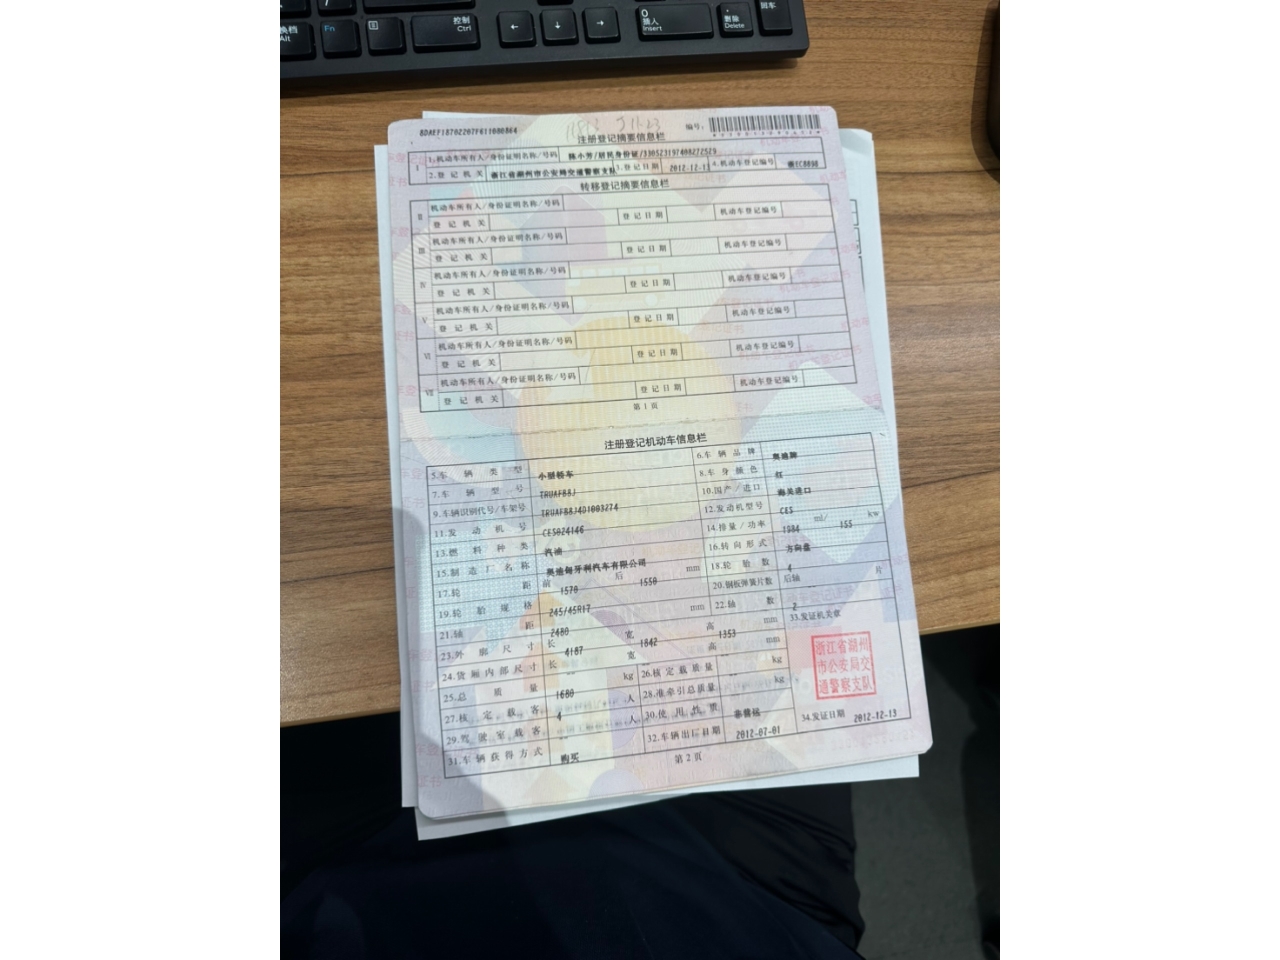 换档 Alt
Fn
控制 Ctrl
← ↓ →
0 插入 Insert
删除 Delete
回车
编号:
注册登记摘要信息栏
I 1.机动车所有人/身份证明名称/号码 陈小芳/居民身份证/330523197408272529
2.登记机关 浙江省湖州市公安局交通警察支队 3.登记日期 2012-12-13 4.机动车登记编号
转移登记摘要信息栏
II 机动车所有人/身份证明名称/号码
登记机关 登记日期 机动车登记编号
III 机动车所有人/身份证明名称/号码
登记机关 登记日期 机动车登记编号
IV 机动车所有人/身份证明名称/号码
登记机关 登记日期 机动车登记编号
V 机动车所有人/身份证明名称/号码
登记机关 登记日期 机动车登记编号
VI 机动车所有人/身份证明名称/号码
登记机关 登记日期 机动车登记编号
VII 机动车所有人/身份证明名称/号码
登记机关 登记日期 机动车登记编号
第1页
注册登记机动车信息栏
5.车辆类型 小型轿车 6.车辆品牌 奥迪牌
7.车辆型号 TRUAFB8J 8.车身颜色 红
9.车辆识别代号/车架号 TRUAFB8J4D1003274 10.国产/进口 海关进口
11.发动机号 CES024146 12.发动机型号 CES
13.燃料种类 汽油 14.排量/功率 1984 ml/ 155 kw
15.制造厂名称 奥迪匈牙利汽车有限公司 16.转向形式 方向盘
17.轮距 前 1570 后 1550 mm 18.轮胎数 4
19.轮胎规格 245/45R17 20.钢板弹簧片数 后轴 片
21.轴距 2480 mm 22.轴数 2
23.外廓尺寸 长 4187 宽 1842 高 1353 mm 33.发证机关章
24.货厢内部尺寸 长 -- 宽 -- 高 -- mm
25.总质量 1680 kg 26.核定载质量 -- kg
27.核定载客 4 人 28.准牵引总质量 -- kg
29.驾驶室载客 -- 人 30.使用性质 非营运
31.车辆获得方式 购买 32.车辆出厂日期 2012-07-01 34.发证日期 2012-12-13
浙江省湖州
市公安局交
通警察支队
第2页